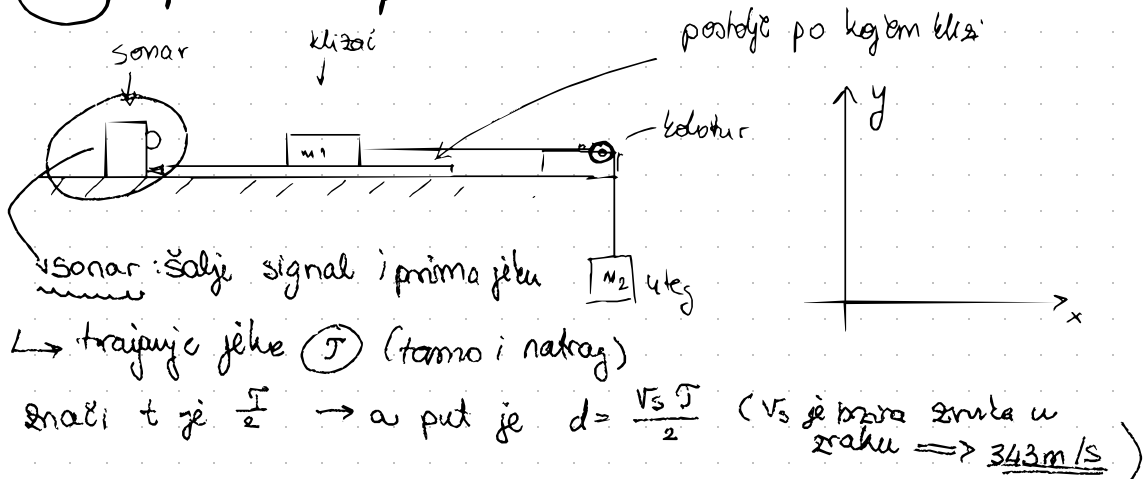 sonar
klizač
postolje po kojem klizi
kolotur
y
x
m1
m2 uteg
sonar: šalje signal i prima jeku
↳ trajanje jeke T (tamo i natrag)
znači t je T/2 → a put je d = vs T/2 (vs je brzina zvuka u
zraku ⇒ 343 m/s)